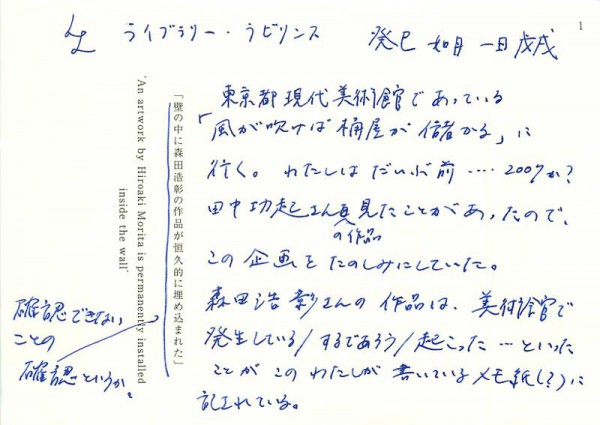 LL ライブラリー・ラビリンス
癸巳 如月 一日 戊戌
1
東京都現代美術館であっている
「風が吹けば桶屋が儲かる」に
行く。わたしはだいぶ前‥‥2009か?
田中功起さん見たことがあったので、
の作品
この企画をたのしみにしていた。
森田浩彰さんの作品は、美術館で
発生している/するであろう/起こった…といった
ことがこのわたしが書いているメモ紙(?)に
記されている。
「壁の中に森田浩彰の作品が恒久的に埋め込まれた」
'An artwork by Hiroaki Morita is permanently installed
inside the wall'
確認できない
ことの
確認というか。